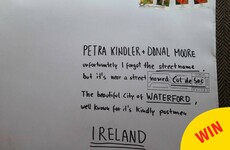 PETRA KINDLER + DONAL MOORE
unfortunately I forgot the street name,
but it's not a street inward Cul de Sac
The beautiful City of WATERFORD,
well known for it's kindly postmen
IRELAND
WIN